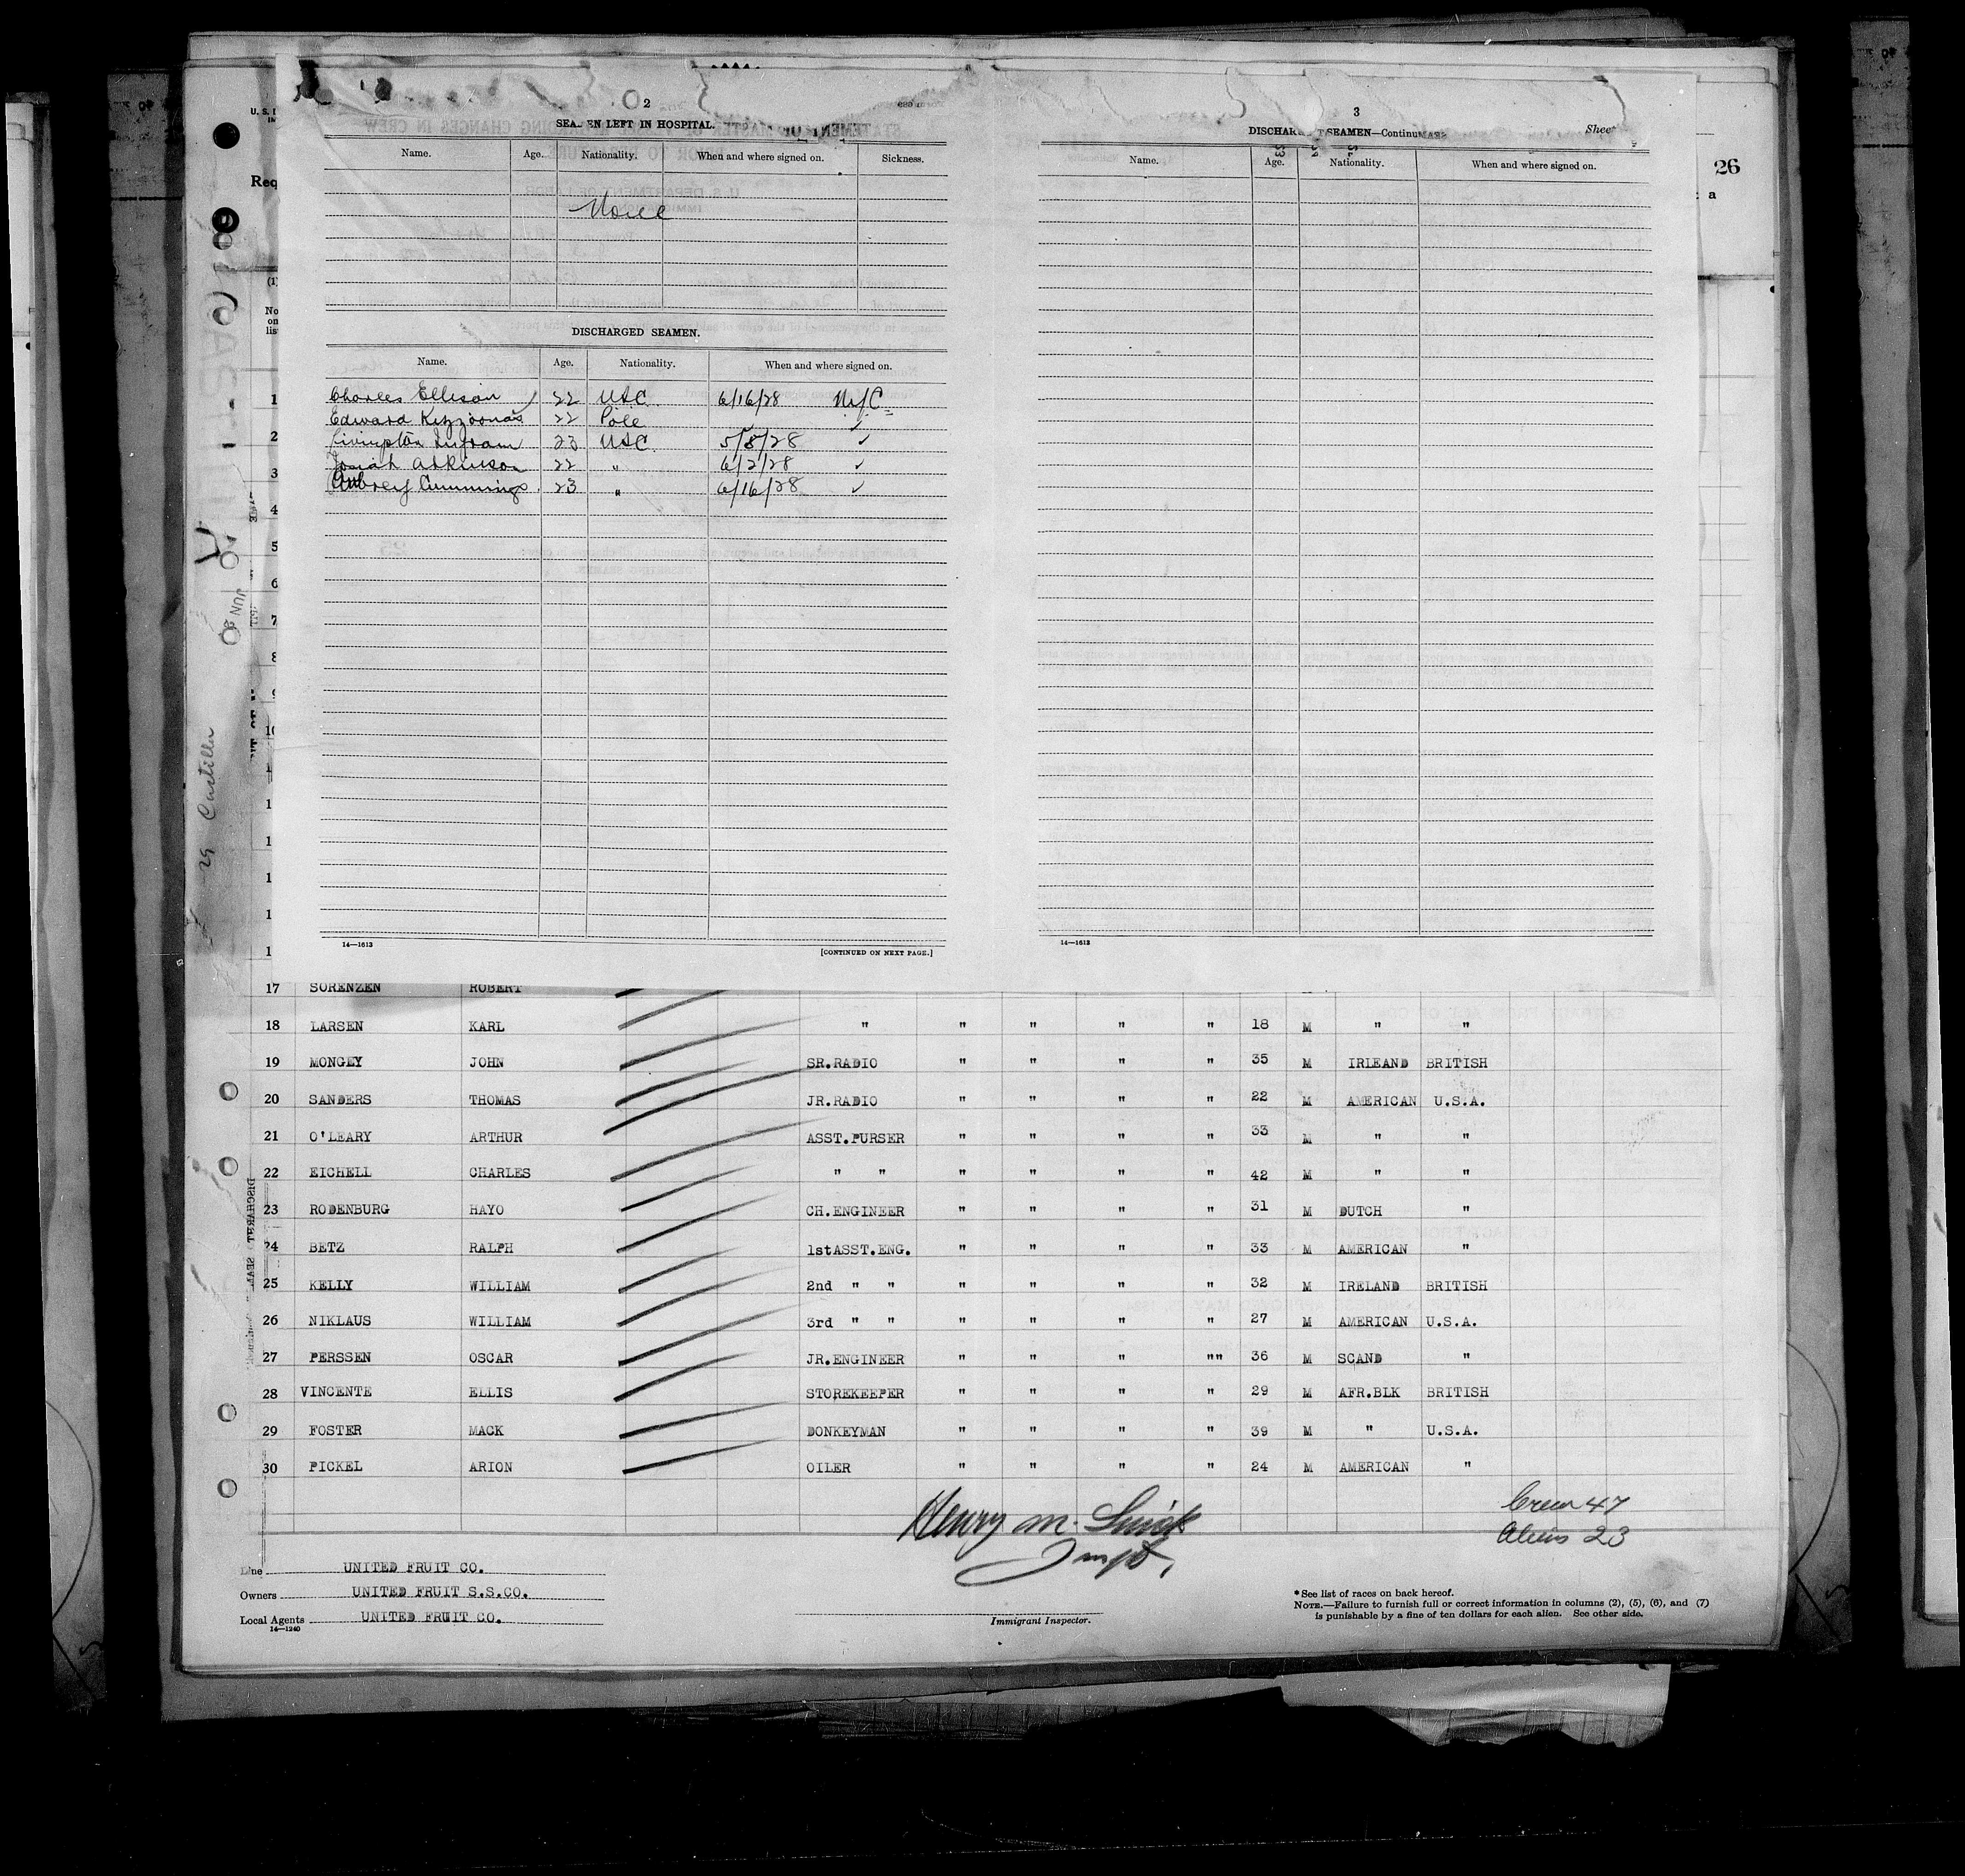 2
SEAMEN LEFT IN HOSPITAL.
Name. Age. Nationality. When and where signed on. Sickness.
None
DISCHARGED SEAMEN.
Name. Age. Nationality. When and where signed on.
Charles Ellison 22 USC 6/16/28 N/C
Edward 22 Pole ✓ ✓
23 USC 5/8/28 ✓
Josiah Atkinson 22 " 6/2/28 ✓
Aubrey Cummings 23 " 6/16/28 ✓
14—1613 [CONTINUED ON NEXT PAGE.]
3
DISCHARGED SEAMEN—Continued
Name. Age. Nationality. When and where signed on.
14—1613
Sheet
26
a
U. S.
Req
(1)
No
on
lis
1
2
3
4
5
6
7
8
9
10
1
1
1
1
1
1
JUN
29 Castilla
17 SORENZEN ROBERT
18 LARSEN KARL " " " " " 18 M " "
19 MONGEY JOHN SR.RADIO " " " " 35 M IRLEAND BRITISH
20 SANDERS THOMAS JR.RADIO " " " " 22 M AMERICAN U.S.A.
21 O'LEARY ARTHUR ASST.PURSER " " " " 33 M " "
22 EICHELL CHARLES " " " " " " 42 M " "
23 RODENBURG HAYO CH.ENGINEER " " " " 31 M DUTCH "
24 BETZ RALPH 1stASST.ENG. " " " " 33 M AMERICAN "
25 KELLY WILLIAM 2nd " " " " " " 32 M IRELAND BRITISH
26 NIKLAUS WILLIAM 3rd " " " " " " 27 M AMERICAN U.S.A.
27 PERSSEN OSCAR JR.ENGINEER " " " "" 36 M SCAND "
28 VINCENTE ELLIS STOREKEEPER " " " " 29 M AFR.BLK BRITISH
29 FOSTER MACK DONKEYMAN " " " " 39 M " U.S.A.
30 PICKEL ARION OILER " " " " 24 M AMERICAN "
Crew 47
Aliens 23
Henry M.
Insp.
Line UNITED FRUIT CO.
Owners UNITED FRUIT S.S.CO.
Local Agents UNITED FRUIT CO.
14—1240
Immigrant Inspector.
*See list of races on back hereof.
NOTE.—Failure to furnish full or correct information in columns (2), (5), (6), and (7)
is punishable by a fine of ten dollars for each alien. See other side.